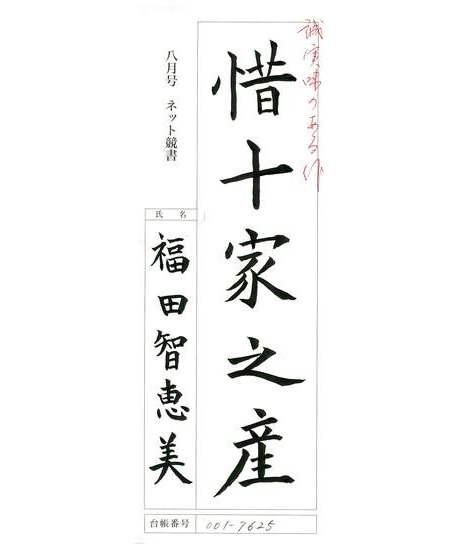 誠実味のある作
惜十家之産
八月号 ネット競書
氏名
福田智恵美
台帳番号 001-7625